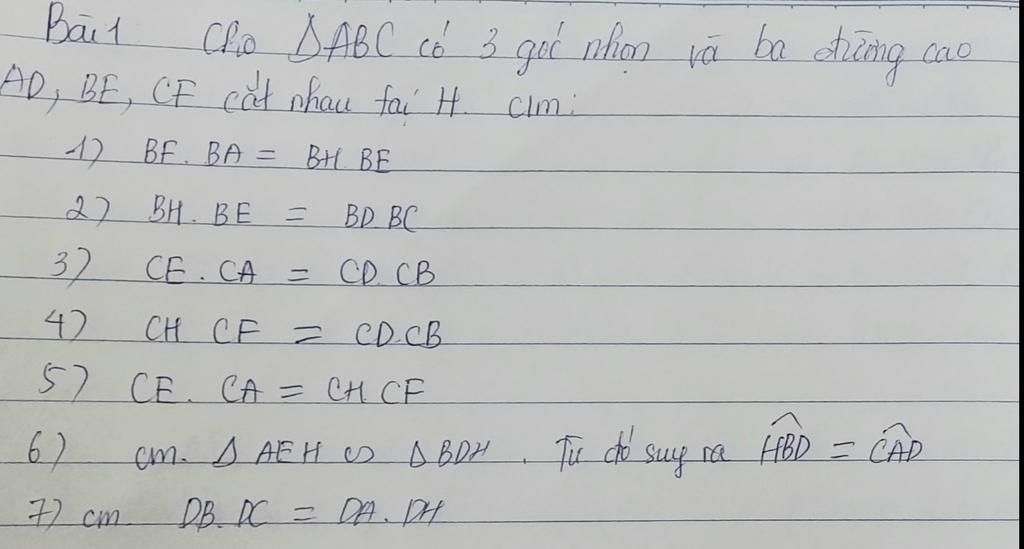 Bài 1 Cho ΔABC có 3 góc nhọn và ba đường cao
AD, BE, CF cắt nhau tại H. CIm:
1) BF. BA = BH. BE
2) BH. BE = BD. BC
3) CE. CA = CD. CB
4) CH CF = CD.CB
5) CE. CA = CH CF
6) cm. Δ AEH ∽ Δ BDH. Từ đó suy ra \widehat{HBD} = \widehat{CAD}
7) cm DB. DC = DA. DH